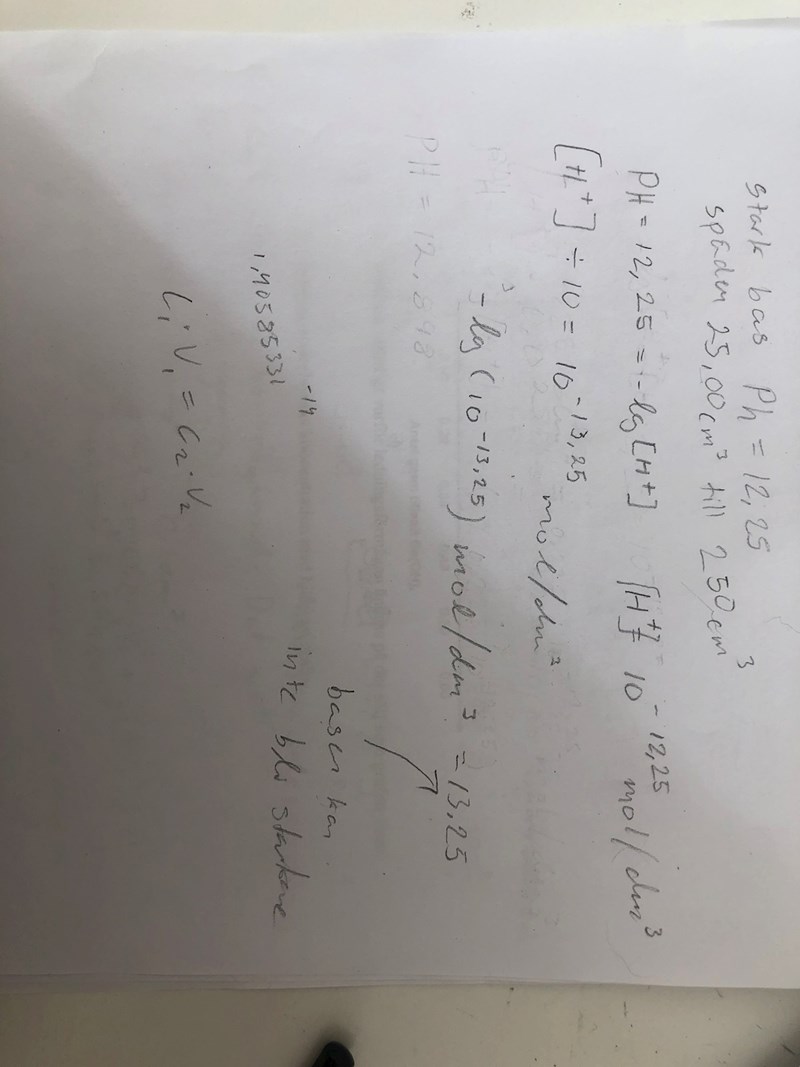 stark bas Ph = 12,25
späder 25,00 cm³ till 250 cm³
PH = 12,25 = -lg [H⁺] [H⁺] = 10⁻¹²,²⁵ mol/dm³
[H⁺] ÷ 10 = 10⁻¹³,²⁵ mol/dm³
-lg (10⁻¹³,²⁵) mol/dm³ = 13,25
PH = 12,848
basen kan
inte bli starkare
1,40585331 ⁻¹⁴
C₁·V₁ = C₂·V₂